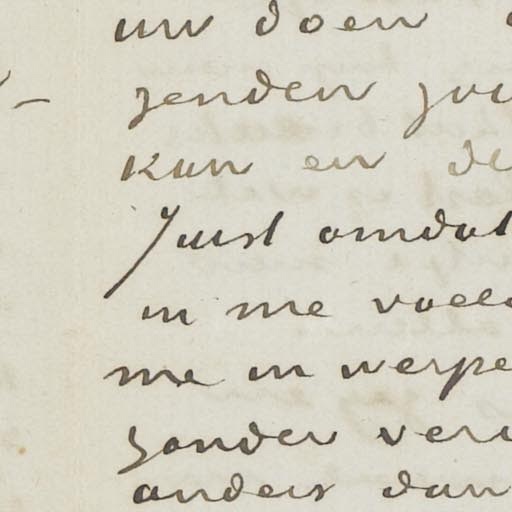 uw doen
zenden zou
kan en de
Juist omdat
in me voel
me in werpe
zonder ver
anders dan